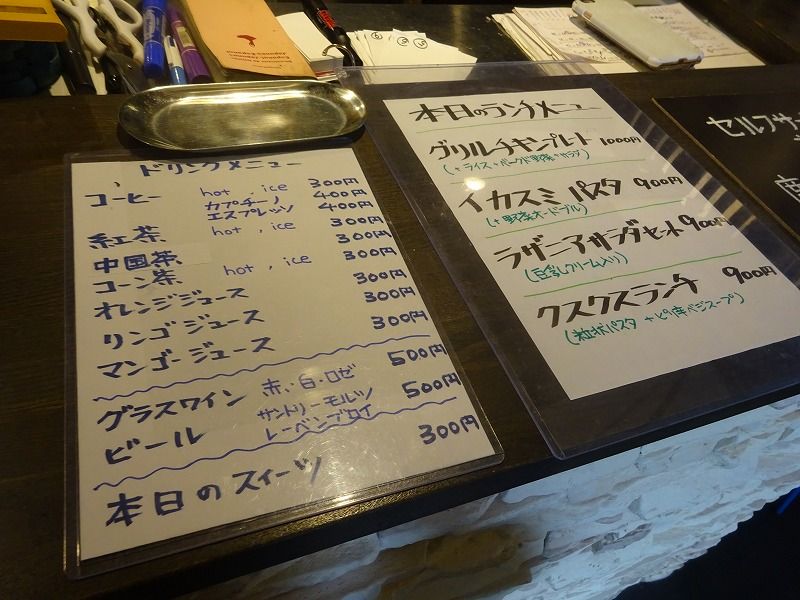 ドリンクメニュー
コーヒー hot , ice 300円
カプチーノ 400円
エスプレッソ 400円
紅茶 hot , ice 300円
中国茶 300円
コーン茶 hot , ice 300円
オレンジジュース 300円
リンゴジュース 300円
マンゴージュース 300円
グラスワイン 赤・白・ロゼ 500円
ビール サントリーモルツ 500円
レーベンブロイ
本日のスイーツ 300円
本日のランチメニュー
グリルチキンプレート 1000円
(+ライス+
イカスミパスタ 900円
(+野菜オードブル)
ラザニアサラダセット 900円
(豆乳クリーム入り)
クスクスランチ 900円
(粒状パスタ +ピリ辛ベジスープ)
セルフサー